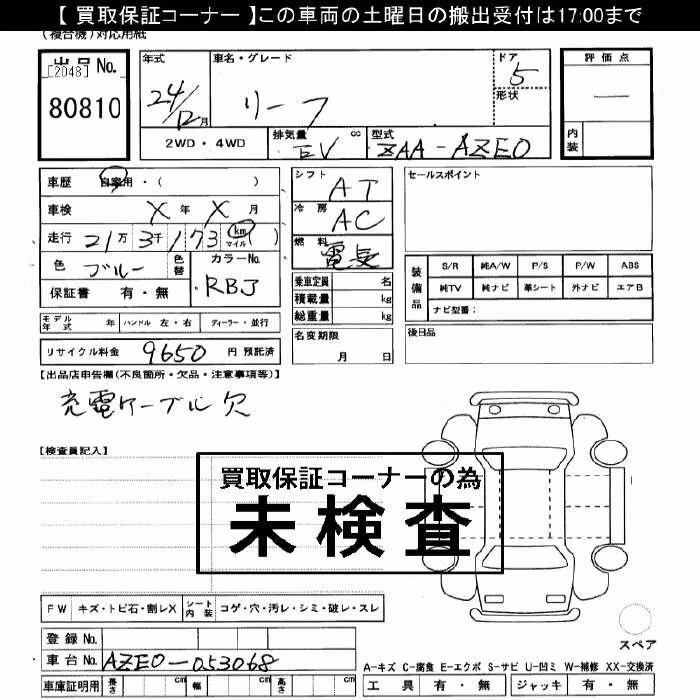 【 買取保証コーナー 】この車両の土曜日の搬出受付は17:00まで
(複合機)対応用紙
出品 No.
[2048]
80810
年式
24/12月
車名・グレード
リーフ
ドア
5
形状
評価点
―
内装
2WD・4WD
排気量 cc
EV
型式
ZAA-AZE0
車歴 自家用・( )
車検 X年 X月
走行 21万3千173 km マイル ( )
色 ブルー 色替
カラーNo.
RBJ
保証書 有・無
シフト AT
冷房 AC
燃料 電気
乗車定員 名
積載量 kg
総重量 kg
セールスポイント
装備品
S/R 純A/W P/S P/W ABS
純TV 純ナビ 革シート 外ナビ エアB
ナビ型番:
モデル年式 年 ハンドル 左・右 ディーラー・並行
名変期限
月 日
後日品
リサイクル料金 9650 円 預託済
【出品店申告欄(不良箇所・欠品・注意事項等)】
充電ケーブル欠
【検査員記入】
買取保証コーナーの為
未検査
FW キズ・トビ石・割レX シート内装 コゲ・穴・汚レ・シミ・破レ・スレ
登録No.
車台No. AZE0-053068
車庫証明用 長さ cm 幅 cm 高さ cm
スペア
A-キズ C-腐食 E-エクボ S-サビ U-凹ミ W-補修 XX-交換済
工具 有・無 ジャッキ 有・無